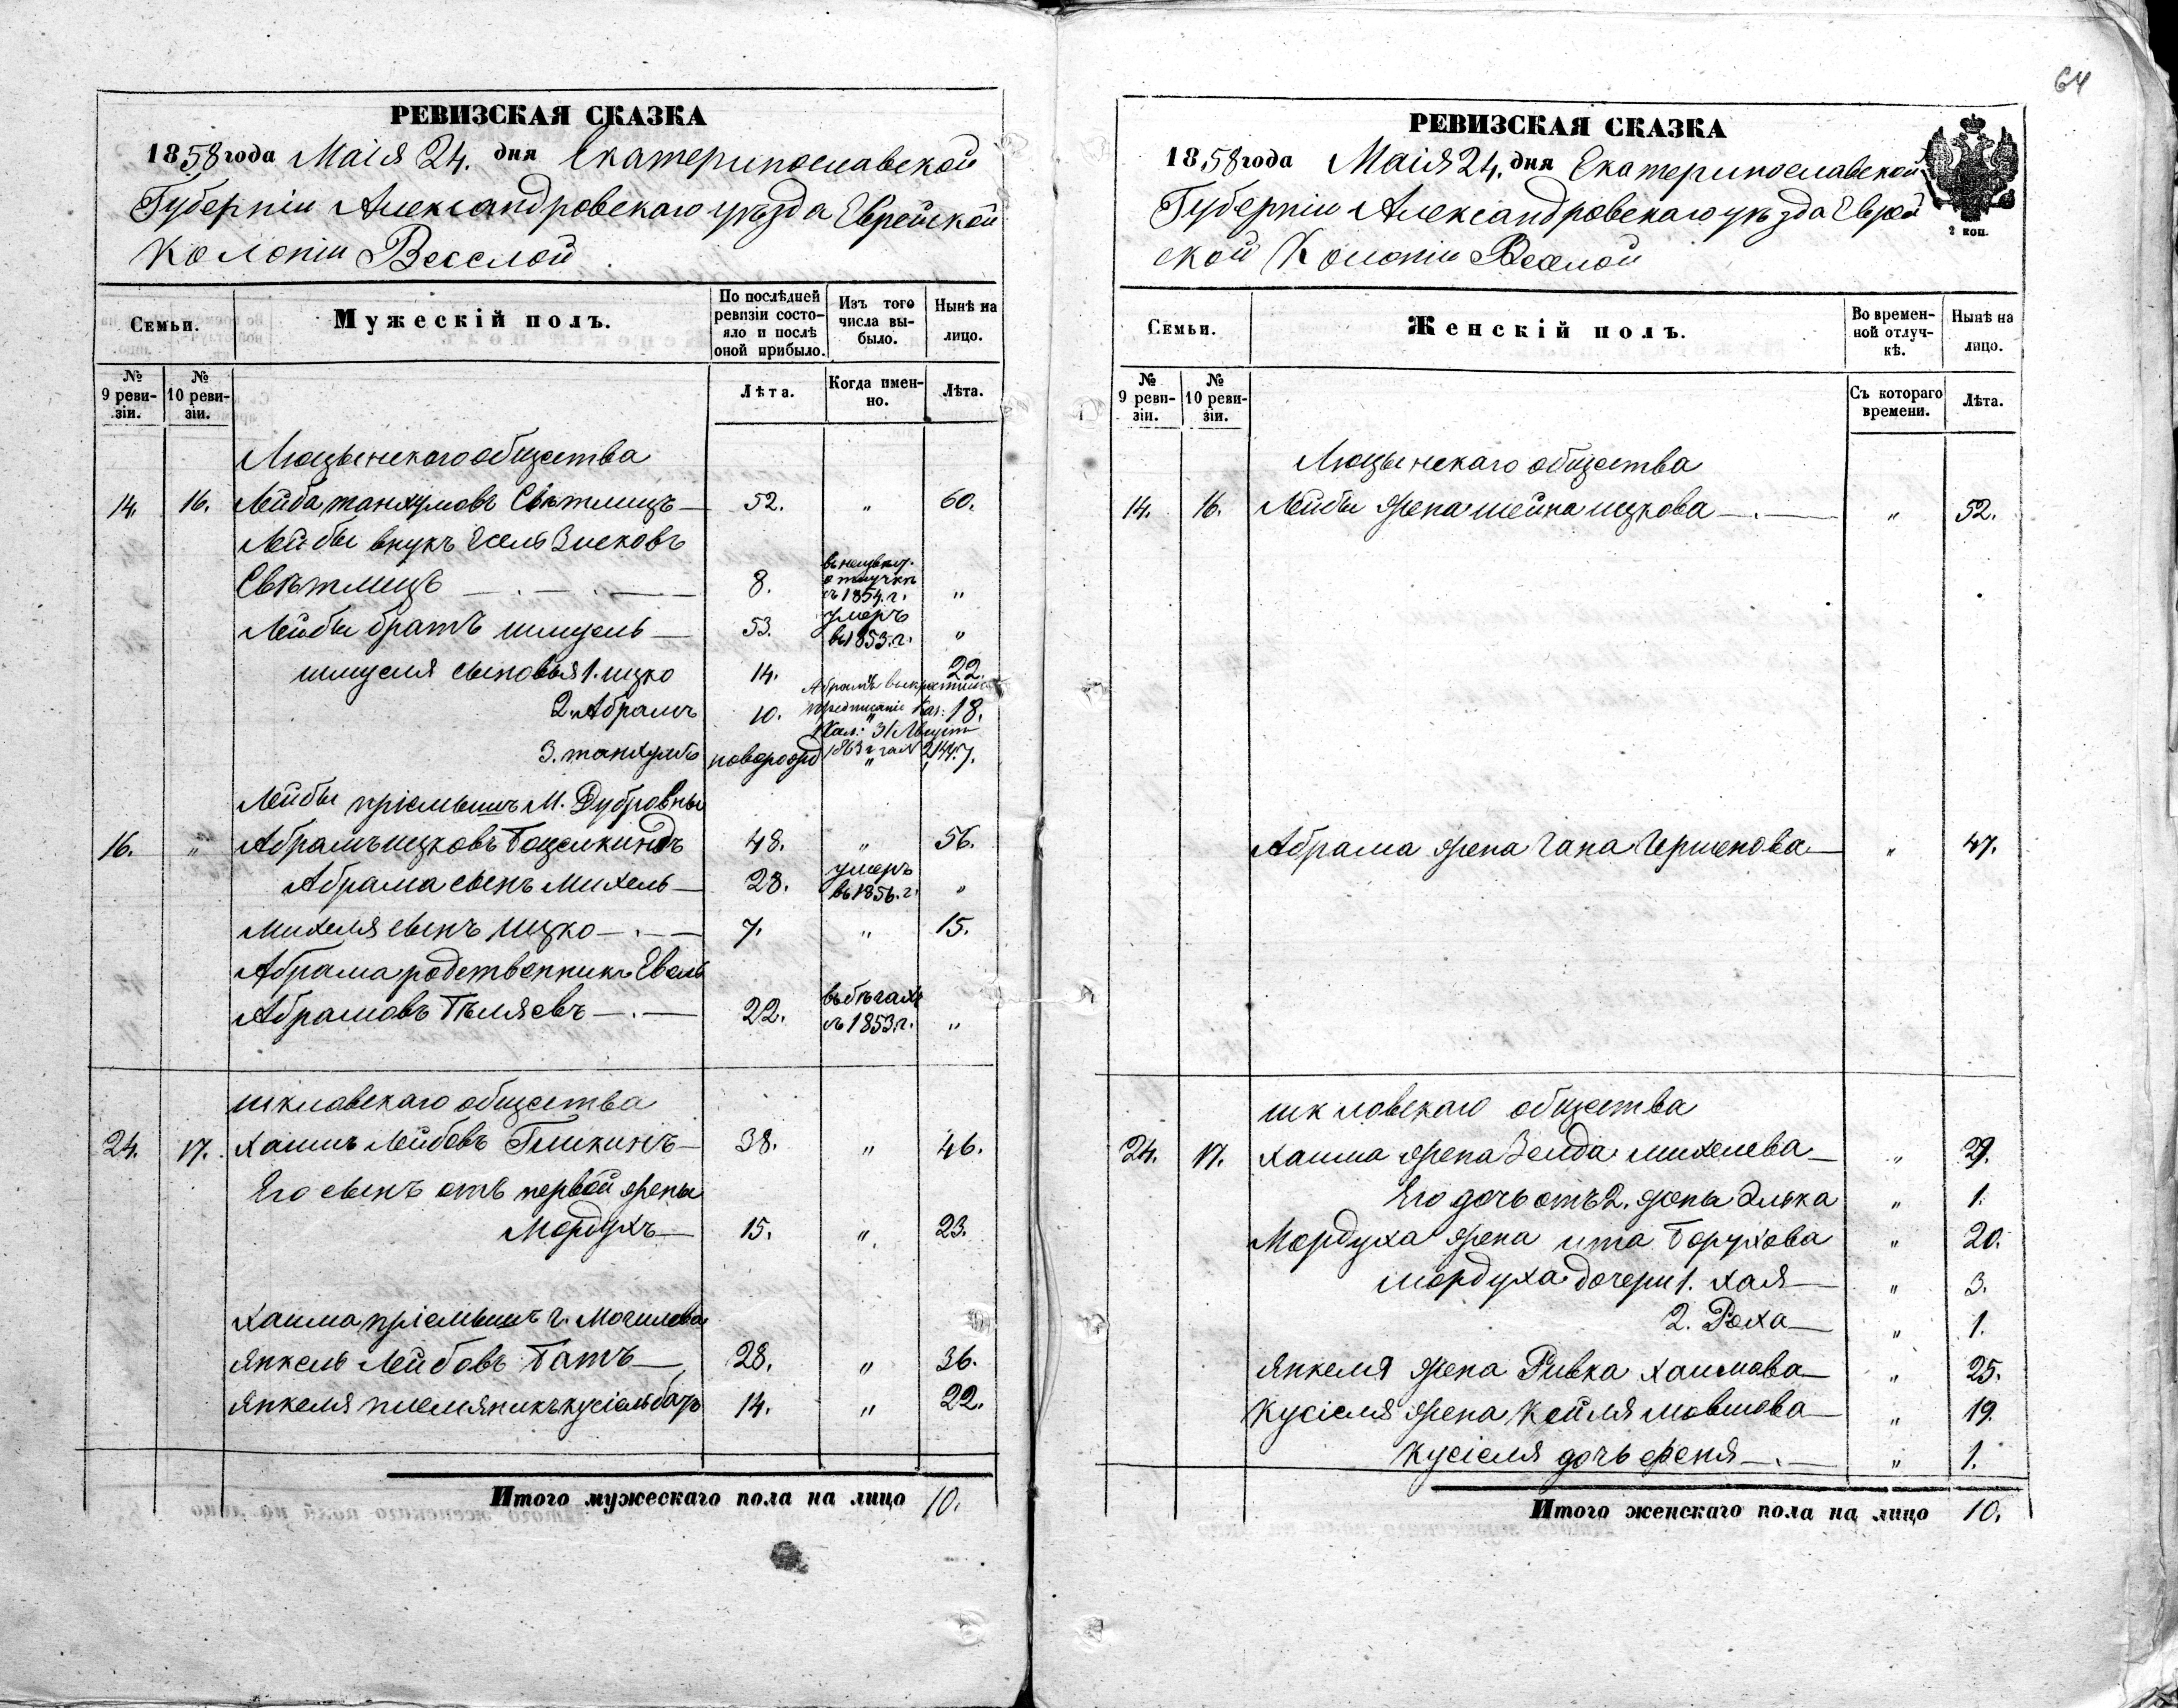 РЕВИЗСКАЯ СКАЗКА
1858 года Маія 24. дня Екатеринославской
Губерніи Александровскаго уѣзда Еврейской
Колоніи Веселой
Семьи. Мужескій полъ. По послѣдней ревизіи состояло и послѣ оной прибыло. Изъ того числа выбыло. Нынѣ на лицо.
№ 9 ревизіи. № 10 ревизіи. Лѣта. Когда именно. Лѣта.
Люцынскаго общества
14. 16. Лейба танхумовъ Свѣтлицъ 52. " 60.
Лейбы внукъ
Свѣтлицъ 8. отлучкѣ съ 1854. г. "
Лейбы братъ шмуель 53. умеръ въ 1853. г. "
шмуеля сыновья 1. ицко 14. 22.
2. Абрамъ 10. " 18.
3. танхумъ новорожд " 7.
Абрамъ
предписаніе Каз:
Пал: 31 Август
1863 г за №
Лейбы пріемышъ М. Дубровны
16. " Абрамъ ицковъ 48. " 56.
Абрама сынъ Михель 28. умеръ въ 1856. г. "
Михеля сынъ Ицко 7. " 15.
Абрама родственникъ Евель
Абрамовъ 22. въ бѣгахъ съ 1853. г. "
шкловскаго общества
24. 17. Хаимъ Лейбовъ 38. " 46.
Его сынъ отъ первой жены
Мордухъ 15. " 23.
Хаима пріемышъ г. Могилева
Янкель Лейбовъ Батъ 28. " 36.
Янкеля племяникъ кусіель батъ 14. " 22.
Итого мужескаго пола на лицо 10.
64
РЕВИЗСКАЯ СКАЗКА
1858 года Маія 24. дня Екатеринославской
Губерніи Александровскаго уѣзда Еврей
ской Колоніи Веселой
2 коп.
Семьи. Женскій полъ. Во временной отлучкѣ. Нынѣ на лицо.
№ 9 ревизіи. № 10 ревизіи. Съ котораго времени. Лѣта.
Люцынскаго общества
14. 16. Лейбы жена шейна ицкова " 52.
Абрама жена Гершонова " 47.
шкловскаго общества
24. 17. Хаима жена Зелда михелева " 29.
Его дочь отъ 2. жены Элька " 1.
Мордуха жена ита Борухова " 20.
мордуха дочери 1. хая " 3.
2. Роха " 1.
Янкеля жена Ривка хаимова " 25.
Кусіеля жена Кейля мовшова " 19.
Кусіеля дочь " 1.
Итого женскаго пола на лицо 10.